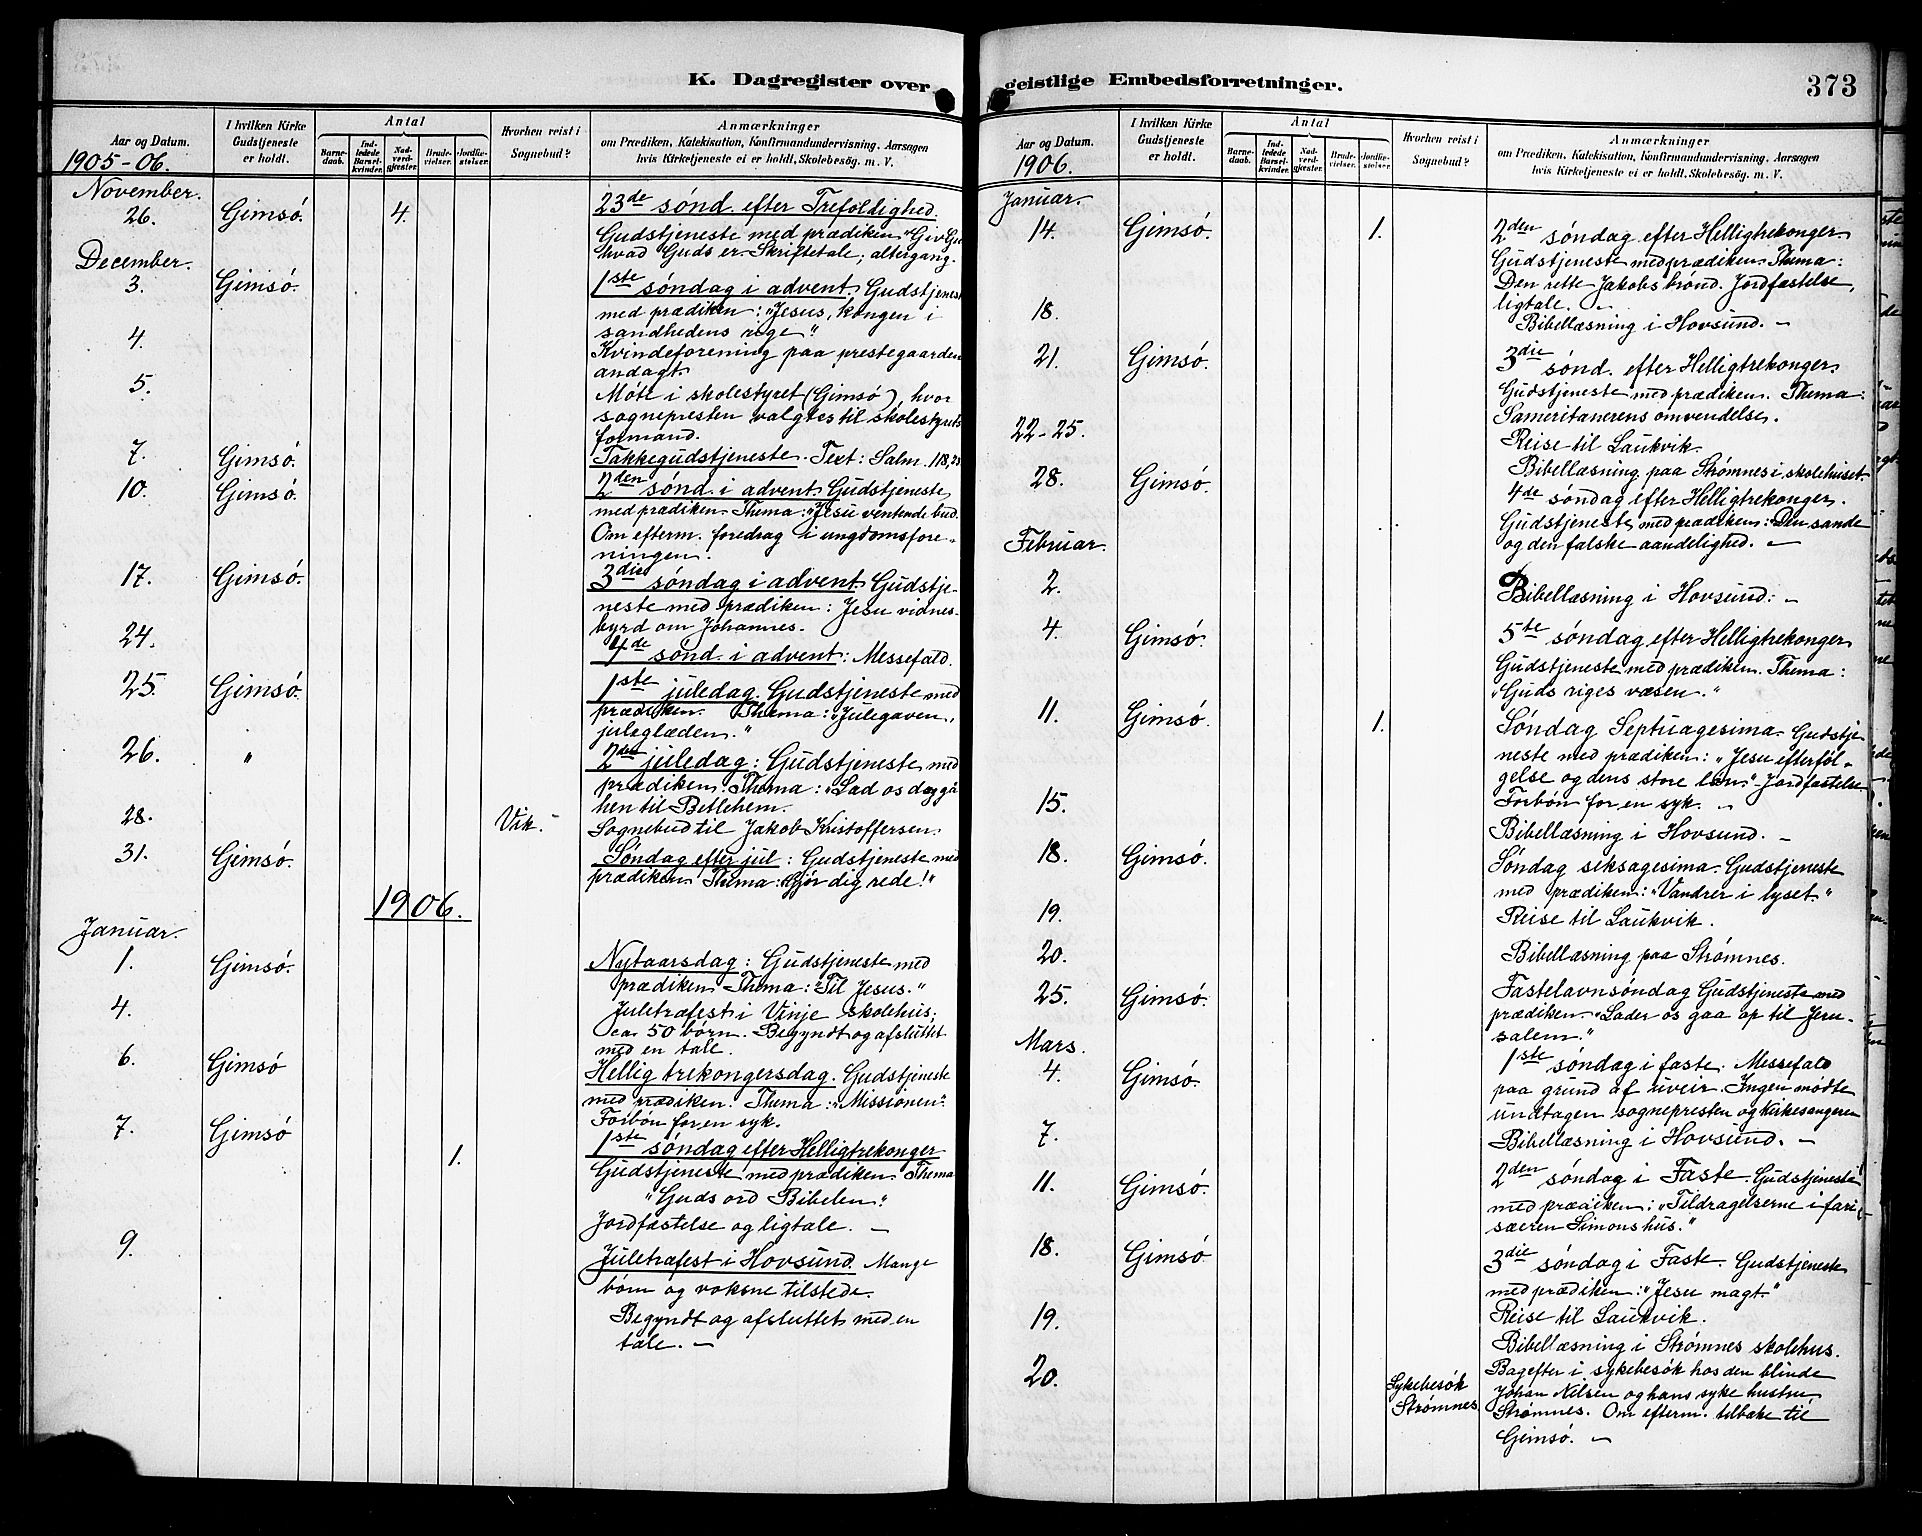 K. Dagregister over
Aar og Datum.
1905-06.
I hvilken Kirke
Gudstjeneste
er holdt.
Antal
Barne-
daab.
Ind-
ledede
Barsel-
kvinder.
Nad-
verd-
gjester.
Brude-
vielser.
Jordfæ-
stelser.
Hvorhen reist i
Sognebud?
Anmærkninger
om Prædiken, Katekisation, Konfirmandundervisning, Aarsagen
hvis Kirketjeneste ei er holdt, Skolebesøg. m. V.
November.
26. Gimsó. 4. 23de sónd. efter Trefoldighed.
Gudstjeneste med prædiken "Giv Gu
hvad Guds er. Skriftetale; altergang.
December.
3. Gimsó. 1ste sóndag i advent. Gudstjenest
med prædiken: "Jesus, kongen i
sandhedens rige."
4. Kvindeforening paa prestegaarden
andagt.
5. Móte i skolestyret (Gimsó), hvor
sognepresten valgtes til skolestyrets
formand.
7. Gimsó. Takkegudstjeneste. Text: Salm. 118,25
10. Gimsó. 2den sónd. i advent. Gudstjeneste
med prædiken. Thema: "Jesu ventende bud.
Om efterm. foredrag i ungdomsfore-
ningen.
17. Gimsó. 3die sóndag i advent. Gudstje-
neste med prædiken: Jesu vidnes-
byrd om Johannes.
24. 4de sónd. i advent: Messefald.
25. Gimsó. 1ste juledag. Gudstjeneste med
prædiken. Thema: "Julegaven,
juleglæden."
26. " 2den juledag: Gudstjeneste med
prædiken. Thema: "Lad os dog gå
hen til Betlehem.
28. Vik. Sognebud til Jakob Kristoffersen.
31. Gimsó. Sóndag efter jul: Gudstjeneste med
prædiken. Thema: "Gjór dig rede!"
1906.
Januar.
1. Gimsó. Nytaarsdag: Gudstjeneste med
prædiken. Thema: "Til Jesus."
4. Juletræfest i Vinje skolehus;
ca. 50 bórn. Begyndt og afsluttet
med en tale.
6. Gimsó Hellig trekongersdag. Gudstjeneste
med prædiken. Thema: "Missionen".
Forbón for en syk.
7. Gimsó 1. 1ste sóndag efter Helligtrekonger
Gudstjeneste med prædiken. Thema
"Guds ord Bibelen."
Jordfæstelse og ligtale. —
9. Juletræfest i Hovsund. Mange
bórn og voksne tilstede.
Begyndt og afsluttet med en
tale. —
geistlige Embedsforretninger.
373
Aar og Datum.
1906.
I hvilken Kirke
Gudstjeneste
er holdt.
Antal
Barne-
daab.
Ind-
ledede
Barsel-
kvinder.
Nad-
verd-
gjester.
Brude-
vielser.
Jordfæ-
stelser.
Hvorhen reist i
Sognebud?
Anmærkninger
om Prædiken, Katekisation, Konfirmandundervisning, Aarsagen
hvis Kirketjeneste ei er holdt, Skolebesøg. m. V.
Januar.
14. Gimsó. 1. 2den sóndag efter Helligtrekonger
Gudstjeneste med prædiken. Thema:
Den rette Jakobs brónd. Jordfæstelse,
ligtale. —
18. Bibellæsning i Hovsund. —
21. Gimsó. 3die sónd. efter Helligtrekonger
Gudstjeneste med prædiken. Thema:
Sameritanerens omvendelse.
22-25. Reise til Laukvik.
Bibellæsning paa Strømnes i skolehuset.
28. Gimsó. 4de sóndag efter Helligtrekonger.
Gudstjeneste med prædiken: Den sande
og den falske aandelighed. —
Februar.
2. Bibellæsning i Hovsund: —
4. Gimsó. 5te sóndag efter Helligtrekonger
Gudstjeneste med prædiken. Thema:
"Guds riges væsen."
11. Gimsó. 1. Sóndag Septuagesima. Gudstje
neste med prædiken: "Jesu efterføl-
gelse og dens store løn". Jordfæstelse
Forbón for en syk. —
15. Bibellæsning i Hovsund. —
18. Gimsó. Sóndag siksagesima. Gudstjeneste
med prædiken: "Vandrer i lyset."
19. Reise til Laukvik.
20. Bibellæsning paa Strømnes.
25. Gimsó. Fastelavnsóndag Gudstjeneste med
prædiken "Lader os gaa op til Jeru-
salem."
Mars.
4. Gimsó. 1ste sóndag i faste. Messefald
paa grund af uveir. Ingen mødte
undtagen sognepresten og kirkesangeren
7. Bibellæsning i Hovsund. —
11. Gimsó. 2den sóndag i Faste. Gudstjeneste
med prædiken: "Tildragelserne i fari
sæeren Simons hus."
18. Gimsó 3die sóndag i Faste. Gudstjeneste
med prædiken: "Jesu magt."
19. Reise til Laukvik.
Bibellæsning i Strømnes skolehus.
20. Sykebesók
Strømnes.
Bagefter i sykebesók hos den blinde
Johan Nilsen og hans syke hustru
Strømnes. Om efterm. tilbake til
Gimsó. —